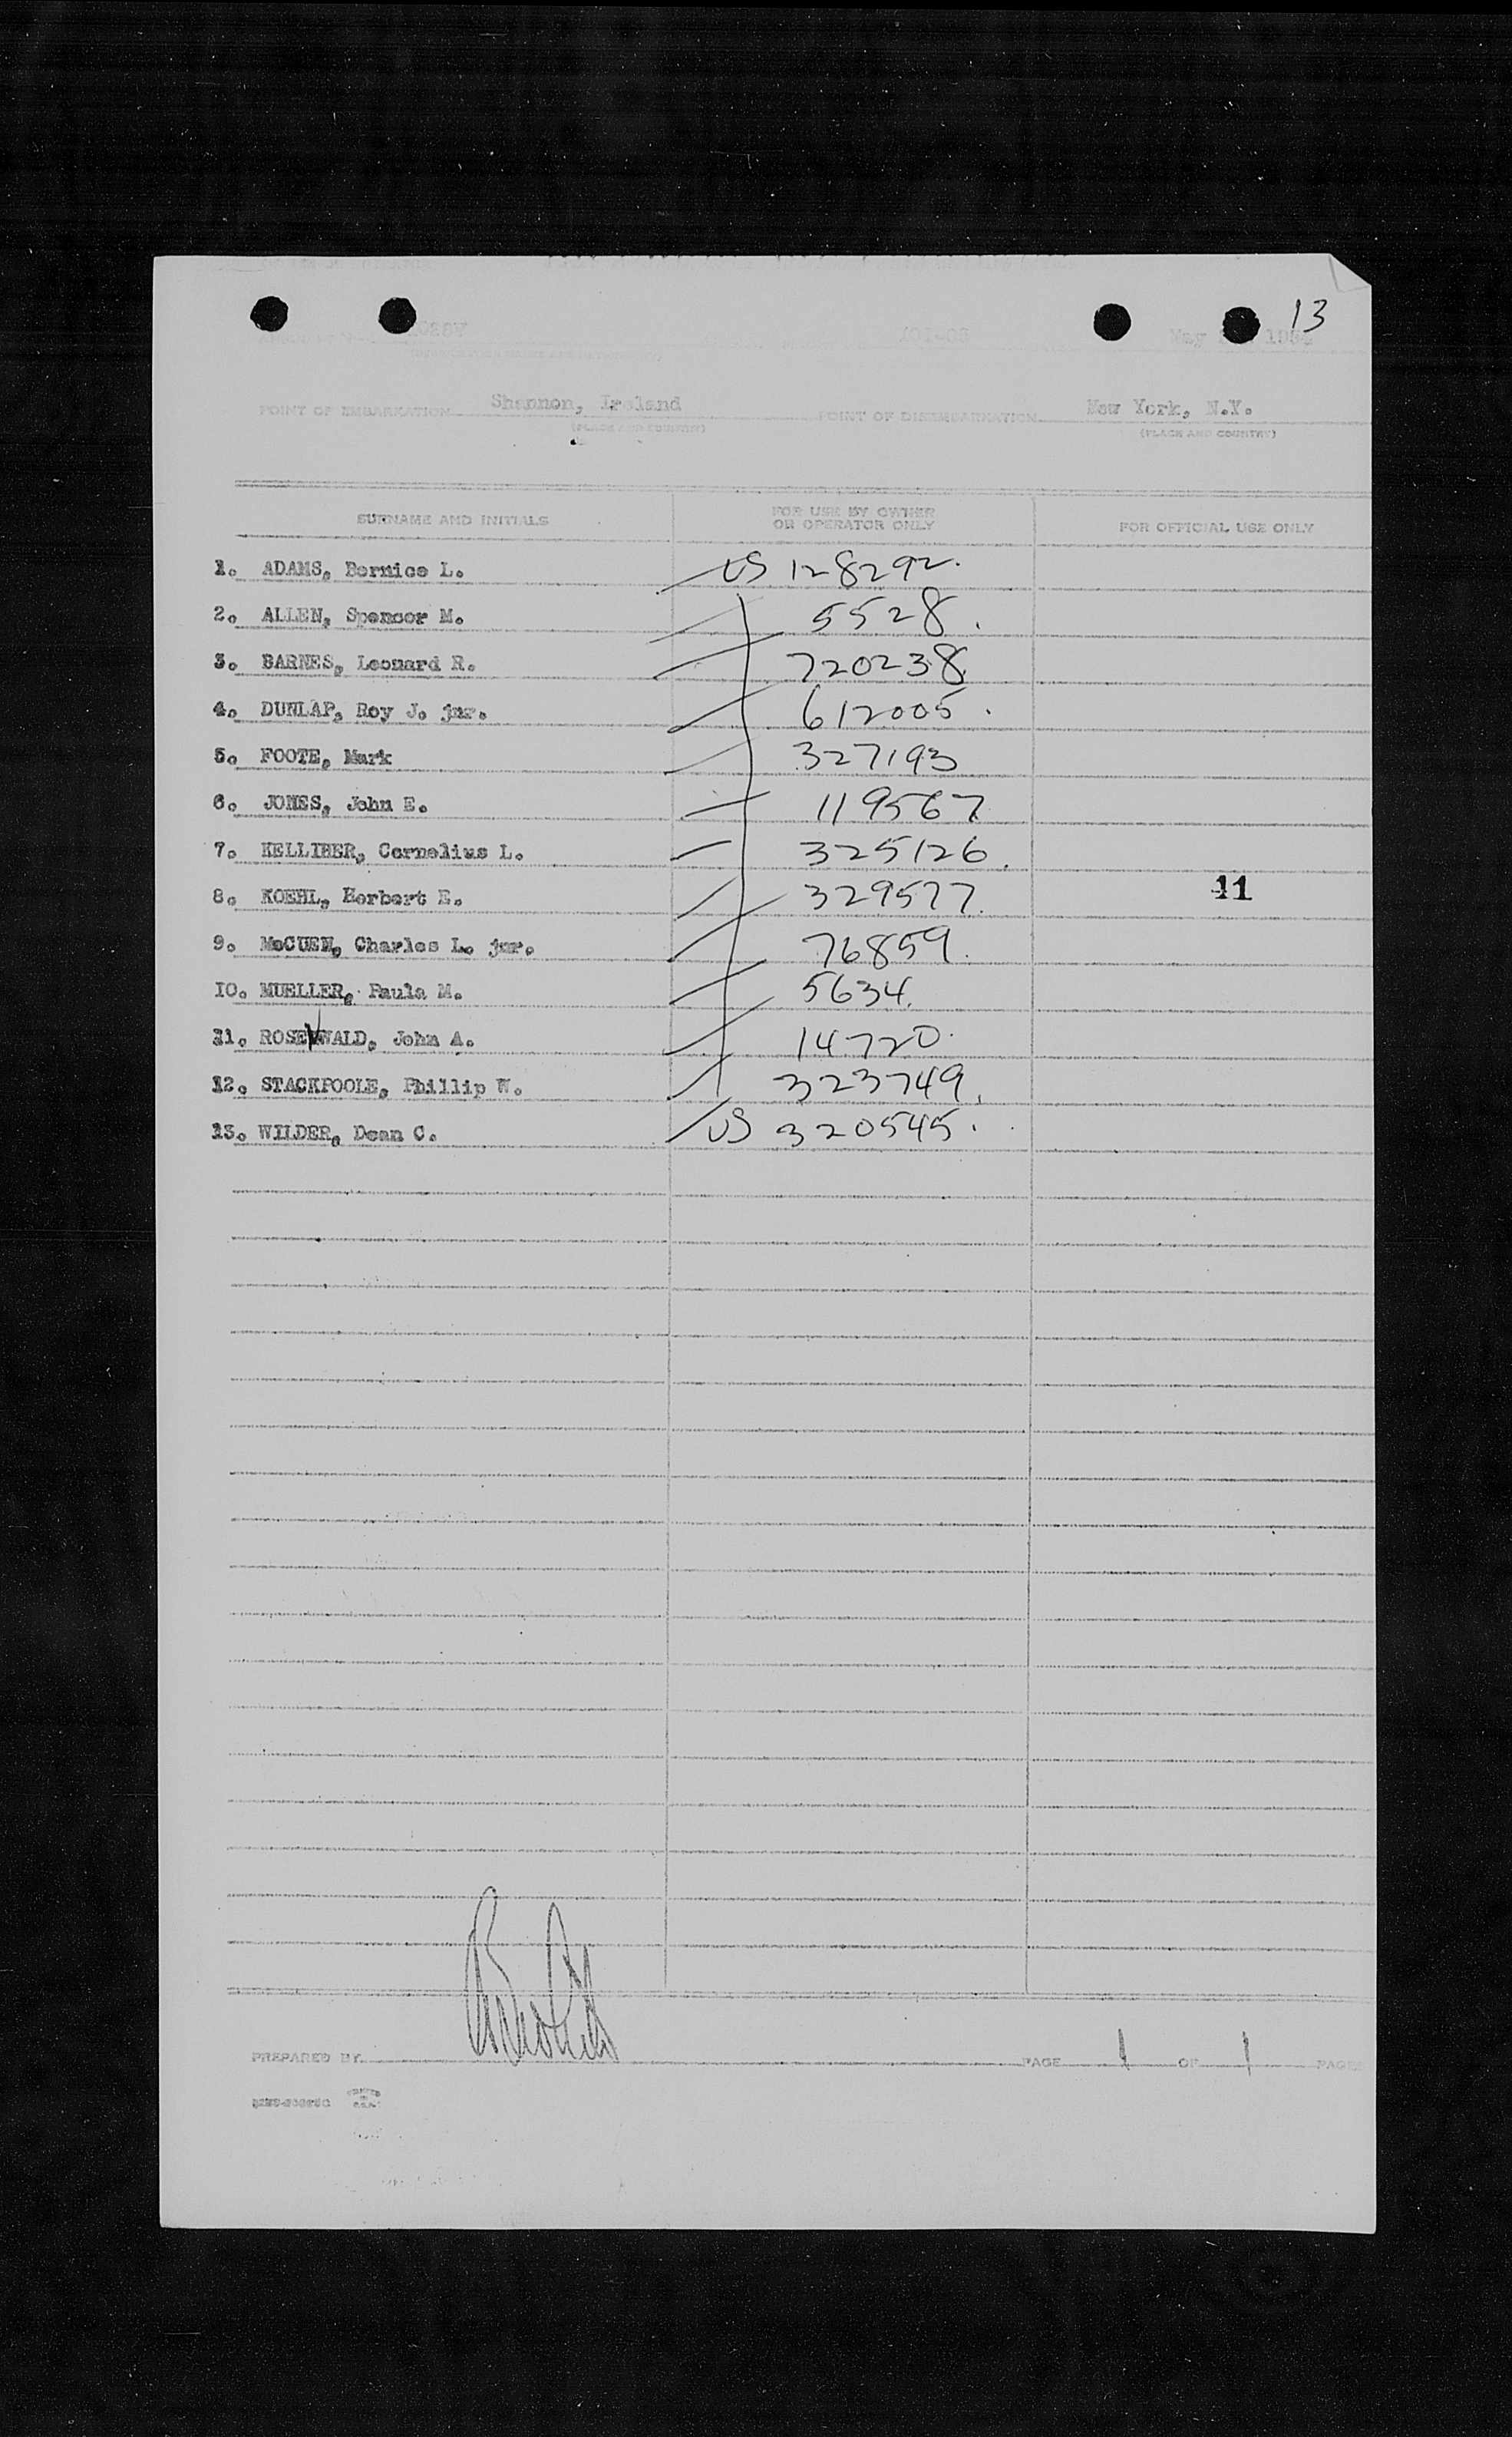 13
May 1954
POINT OF EMBARKATION Shannon, Ireland POINT OF DISEMBARKATION New York, N.Y.
(PLACE AND COUNTRY) (PLACE AND COUNTRY)
SURNAME AND INITIALS FOR USE BY OWNER OR OPERATOR ONLY FOR OFFICIAL USE ONLY
1. ADAMS, Bernice L. US 128292.
2. ALLEN, Spencer M. 5528.
3. BARNES, Leonard R. 720238
4. DUNLAP, Roy J. jnr. 612005.
5. FOOTE, Mark 327193
6. JONES, John E. 119567
7. KELLIHER, Cornelius L. 325126.
8. KOEHL, Herbert E. 329577. 11
9. McCUEN, Charles L. jnr. 76859.
10. MUELLER, Paula M. 5634.
11. ROSENWALD, John A. 14720.
12. STACKPOOLE, Phillip W. 323749.
13. WILDER, Dean C. US 320545.
PREPARED BY PAGE 1 OF 1 PAGES